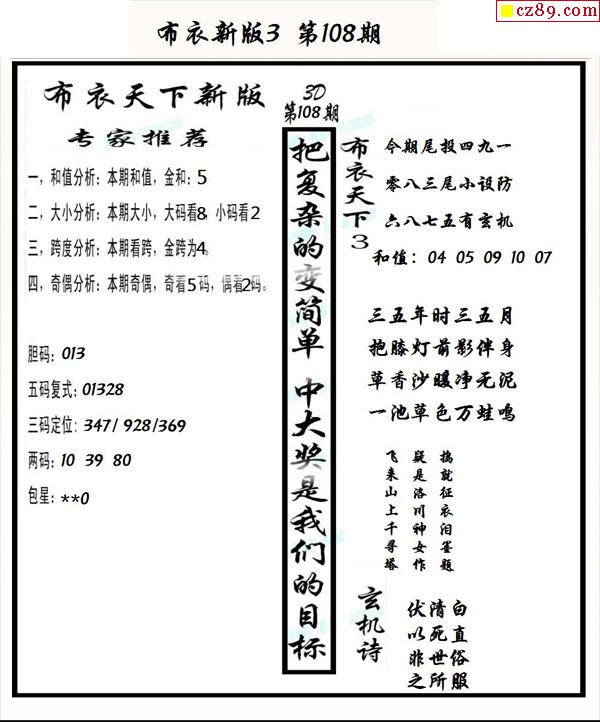 cz89.com
布衣新版3 第108期
布衣天下新版
专家推荐
一，和值分析：本期和值，金和：5
二，大小分析：本期大小，大码看8，小码看2
三，跨度分析：本期看跨，金跨为4。
四，奇偶分析：本期奇偶，奇看5码，偶看2码。
胆码：013
五码复式：01328
三码定位：347/ 928/369
两码：10 39 80
包星：**0
3D
第108期
把复杂的变简单 中大奖是我们的目标
布衣天下3
今期尾投四九一
零八三尾小设防
六八七五有玄机
和值：04 05 09 10 07
三五年时三五月
抱膝灯前影伴身
草香沙暖净无泥
一池草色万蛙鸣
飞来山上千寻塔
疑是洛川神女作
搞就征衣泪墨题
玄机诗
伏清白
以死直
非世俗
之所服